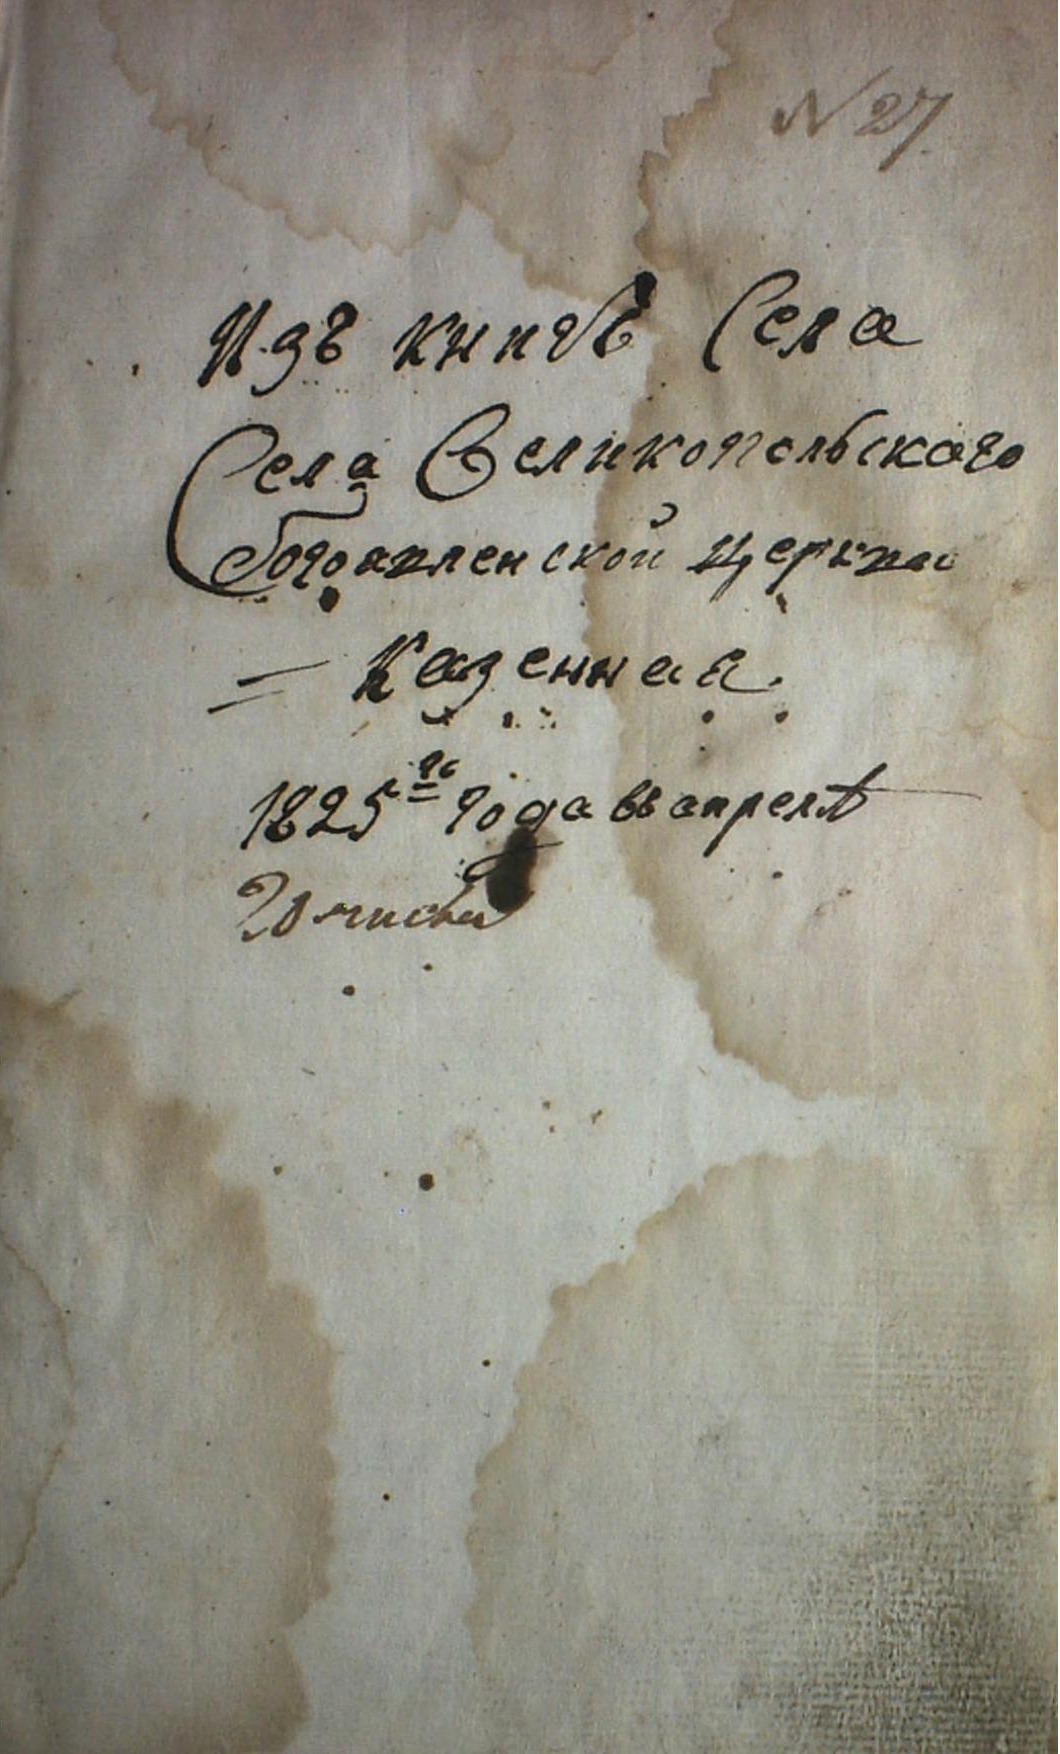 N 27
Изъ книгъ Села
Села Великопольскаго
Богоявленской церкви
= Казенная.
1825го года въ апрелѣ
20 числа